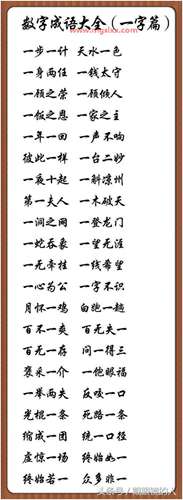 数字成语大全（一字篇）
一步一计 天水一色
一身两任 一钱太守
一顾之荣 一顾倾人
一饭之恩 一家之主
一年一回 一声不响
彼此一样 一台二妙
一夜十起 一斛凉州
第一夫人 一木破天
一涧之网 一登龙门
一蛇吞象 一望无涯
一无牵挂 一线希望
一心为公 一字不识
百不一爽 百无失一
百无一存 问一得三
褒采一介 一饱眼福
一举两失 反咬一口
光棍一条 死路一条
缩成一团 统一口径
虚惊一场 终始如一
终始若一 众多非一